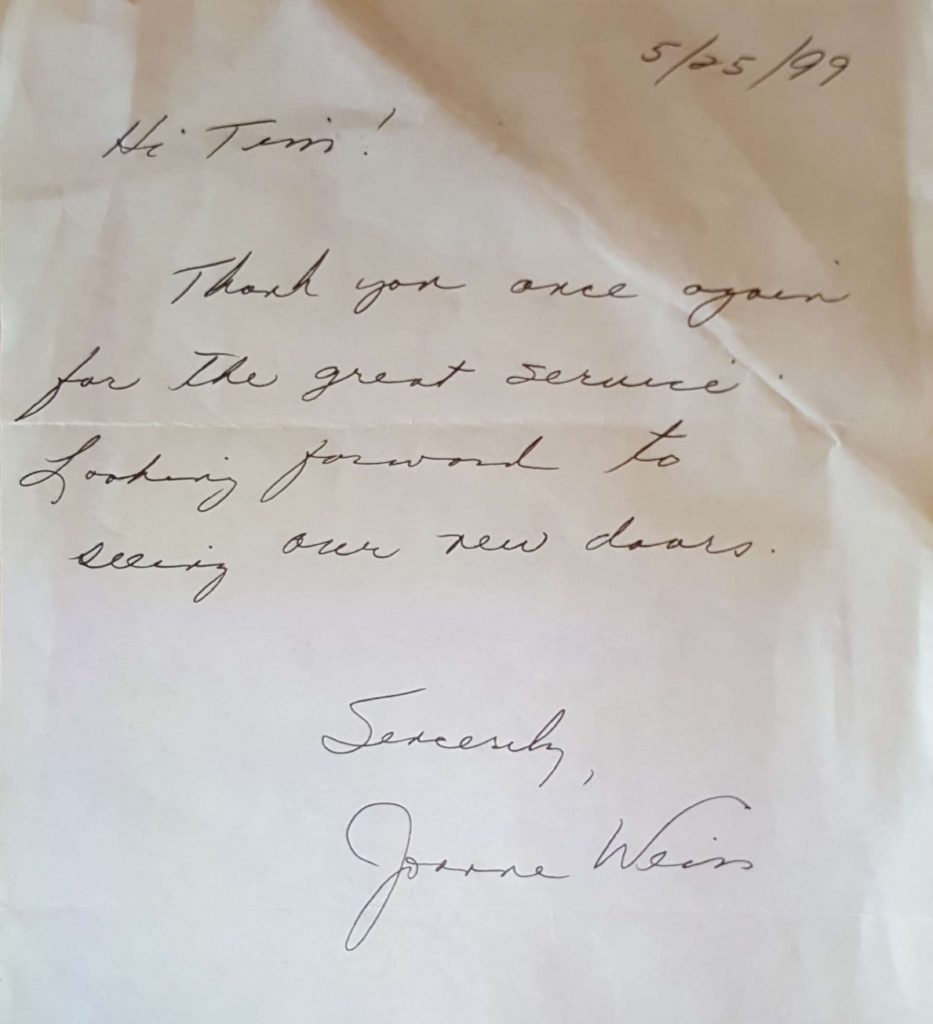 5/25/99
Hi Tim!
Thank you once again
for the great service.
Looking forward to
seeing our new doors.
Sincerely,
Joanne Weiss